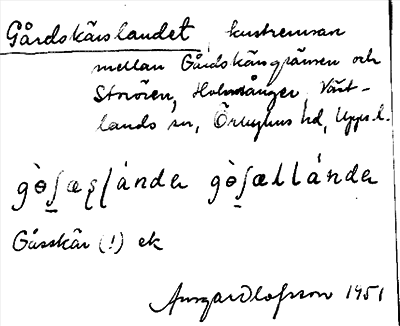 Gårdskärslandet, kustremsan
mellan Gårdskärsgränsen och
Storören, Holmånger, Väst-
lands sn, Örbyhus hd, Upps. l.
gɵ̀ʃæʂḷánder gɵ̀ʃællánder
Gåsskär (!) ek
Ansgar Olofsson 1951